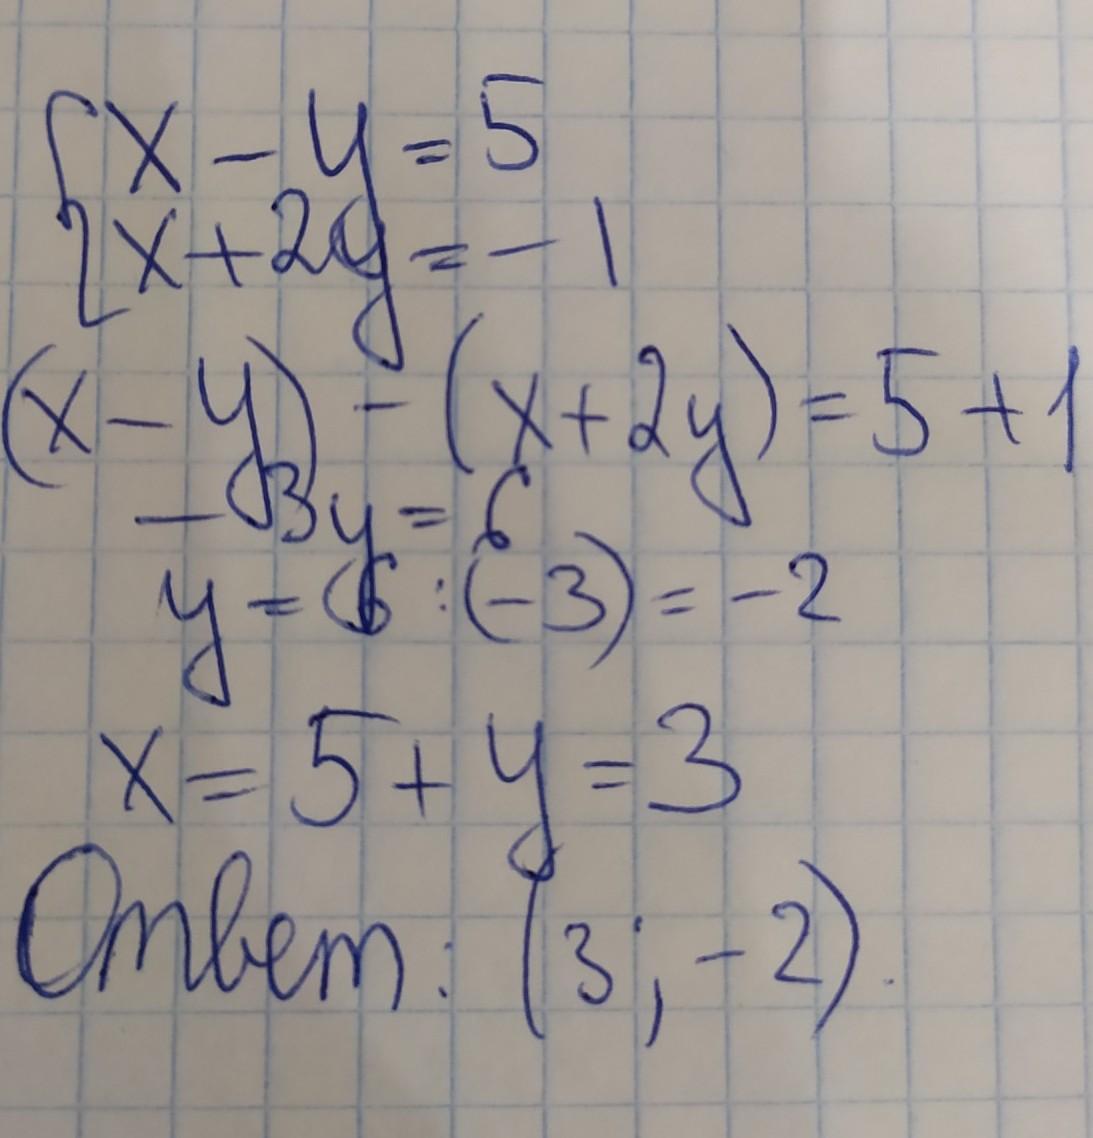 {x - y = 5
x + 2y = - 1
(x - y) - (x + 2y) = 5 + 1
- 3y = 6
y = 6 : (-3) = -2
x = 5 + y = 3
Ответ: (3; -2).